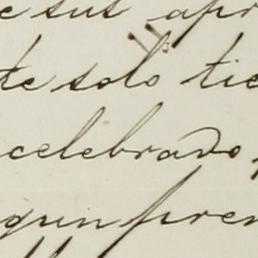 e sus apr
te solo tie
celebrado,
quin pren